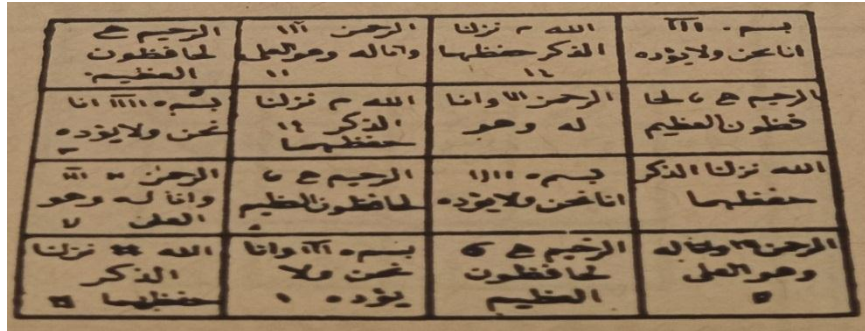 بسم . ااا
انا نحن ولا يؤده
الله م نزلنا
الذكر حفظهما
١٤
الرحمن ااا
وانا له وهو العلى
١١
الرحيم ع
لحافظون
العظيم
الرحيم ع ں لحا
فظون العظيم
الرحمن ااا وانا
له وهو
الله م نزلنا
الذكر ١٤
حفظهما
بسم ه اااا انا
نحن ولا يؤده
الله نزلنا الذكر
حفظهما
بسم ه اااا
انا نحن ولا يؤده
الرحيم ع ں
لحافظون العظيم
الرحمن ااا
وانا له وهو
العلى ٧
الرحمن وانا له
وهو العلى
٥
الرحيم ع
لحافظون
العظيم
بسم ه ااا وانا
نحن ولا
يؤده ١
الله نزلنا
الذكر
حفظهما